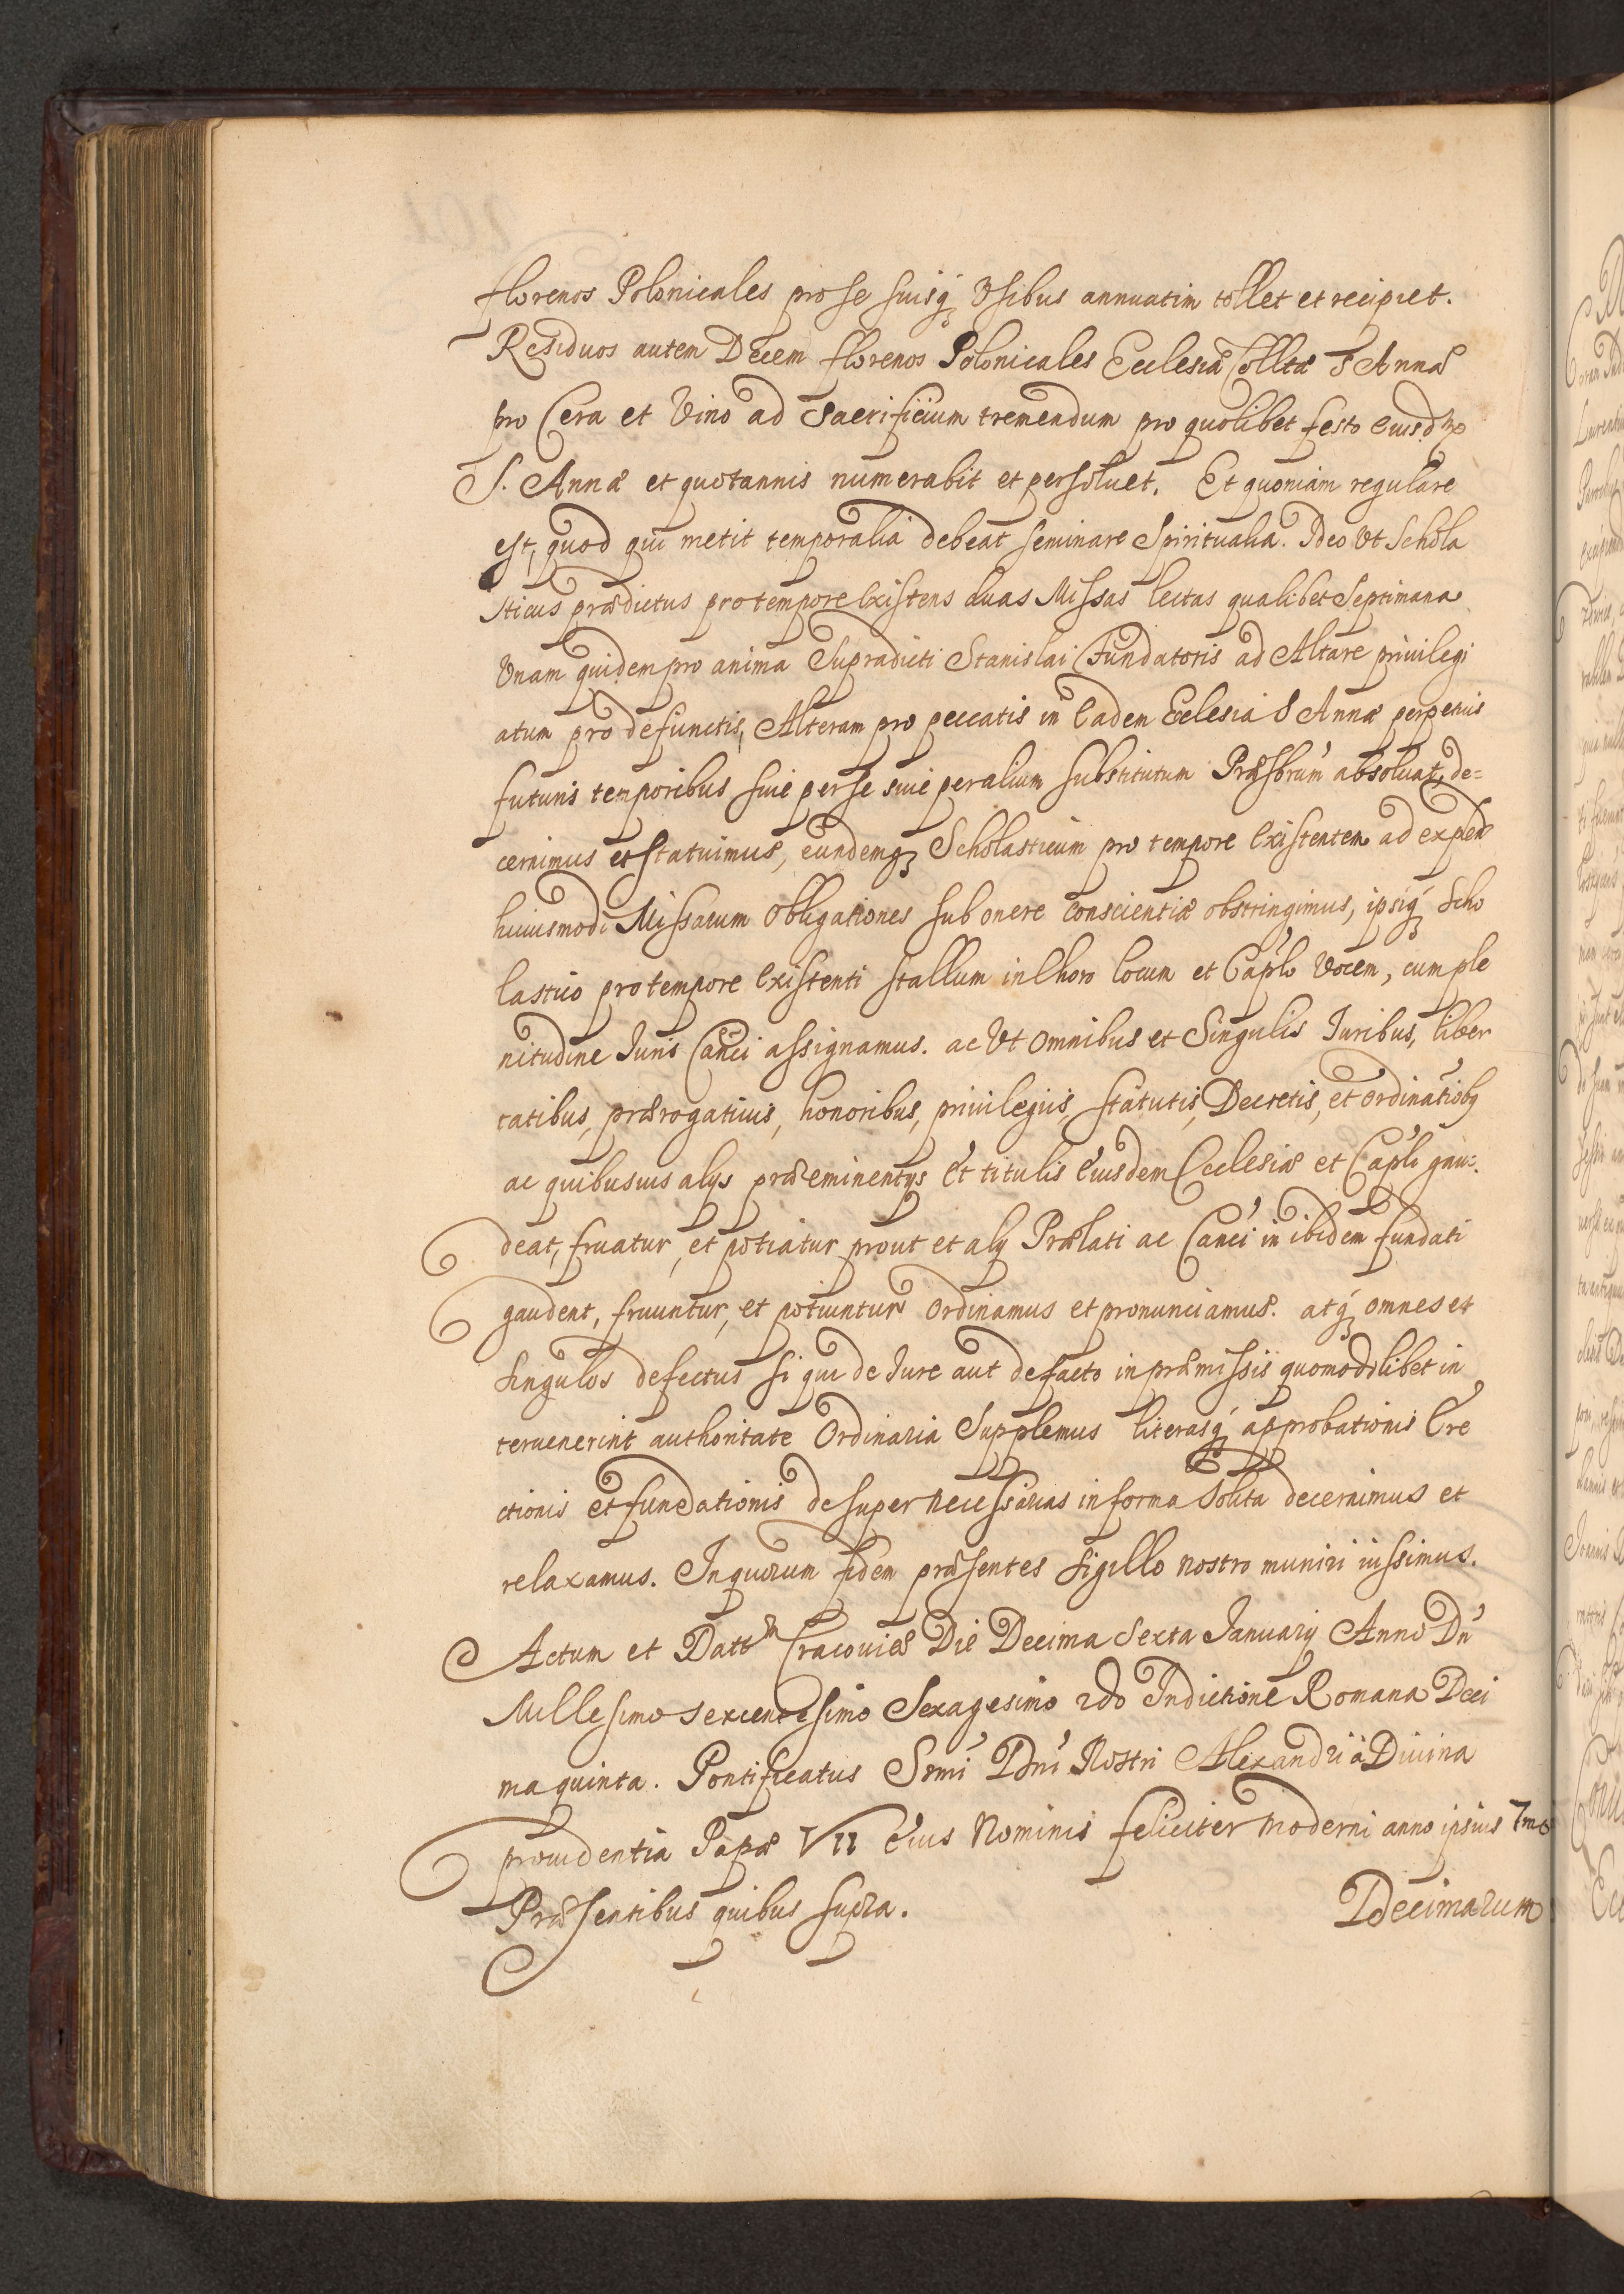 florenos Polonicales pro se suisq́ꝫ Vsibus annuatim tollet et recipiet.
Residuos autem Decem florenos Polonicales Ecclesiæ Colltæ S Annæ
pro Cera et Vino ad Sacrificium tremendum pro quolibet festo eiusdm
S. Annæ et quotannis numerabit et persoluet. Et quoniam regulare
est, quod qui metit temporalia debeat seminare Spiritualia. Ideo Vt Schola
sticus prædictus pro tempore Existens duas Missas lectas qualibet Septimana
Vnam quidem pro anima Supradicti Stanislai Fundatoris ad Altare priuilegi
atum pro defunctis, Alteram pro peccatis in Eadem Ecclesia S Annæ perpetuis
futuris temporibus siue per se siue per alium substitutum Præsbrum absoluat, de=
cernimus et statuimus, eundemqꝫ Scholasticum pro tempore Existentem ad exped
huiusmodi Missarum obligationes sub onere conscientiæ obstringimus, ipsiq́ꝫ Scho
lastico pro tempore Existenti stallum in Choro locum et Caplo Vocem, cum ple
nitudine Juris Canci assignamus. ac Vt omnibus et Singulis Juribus, liber
tatibus, prærogatiuis, honoribus, priuilegiis, statutis, Decretis, et ordinatiobꝫ
ac quibusuis alys præeminentys Et titulis Eiusdem Ecclesiæ et Capli gau=
deat, fruatur, et potiatur prout et aly Prælati ac Canci in ibidem fundati
gaudent, fruuntur, et potiuntur ordinamus et pronunciamus. atq́ꝫ omnes et
singulos defectus si qui de Jure aut de facto in præmissis quomodolibet in
teruenerint authoritate Ordinaria Supplemus literasq́ꝫ approbationis Ere
ctionis et fundationis desuper necessarias in forma Solita decernimus et
relaxamus. In quorum fidem præsentes sigillo nostro muniri iussimus.
Actum et Dattm Cracouiæ Die Decima Sexta January Anno Dn
Millesimo sexcentesimo Sexagesimo 2do Indictione Romana Deci
ma quinta. Pontificatus Ssmi Dni Nostri Alexandri à Diuina
prouidentia Papæ VII Eius Nominis feliciter moderni anno ipsius 7mo
Præsentibus quibus supra.
Decimarum